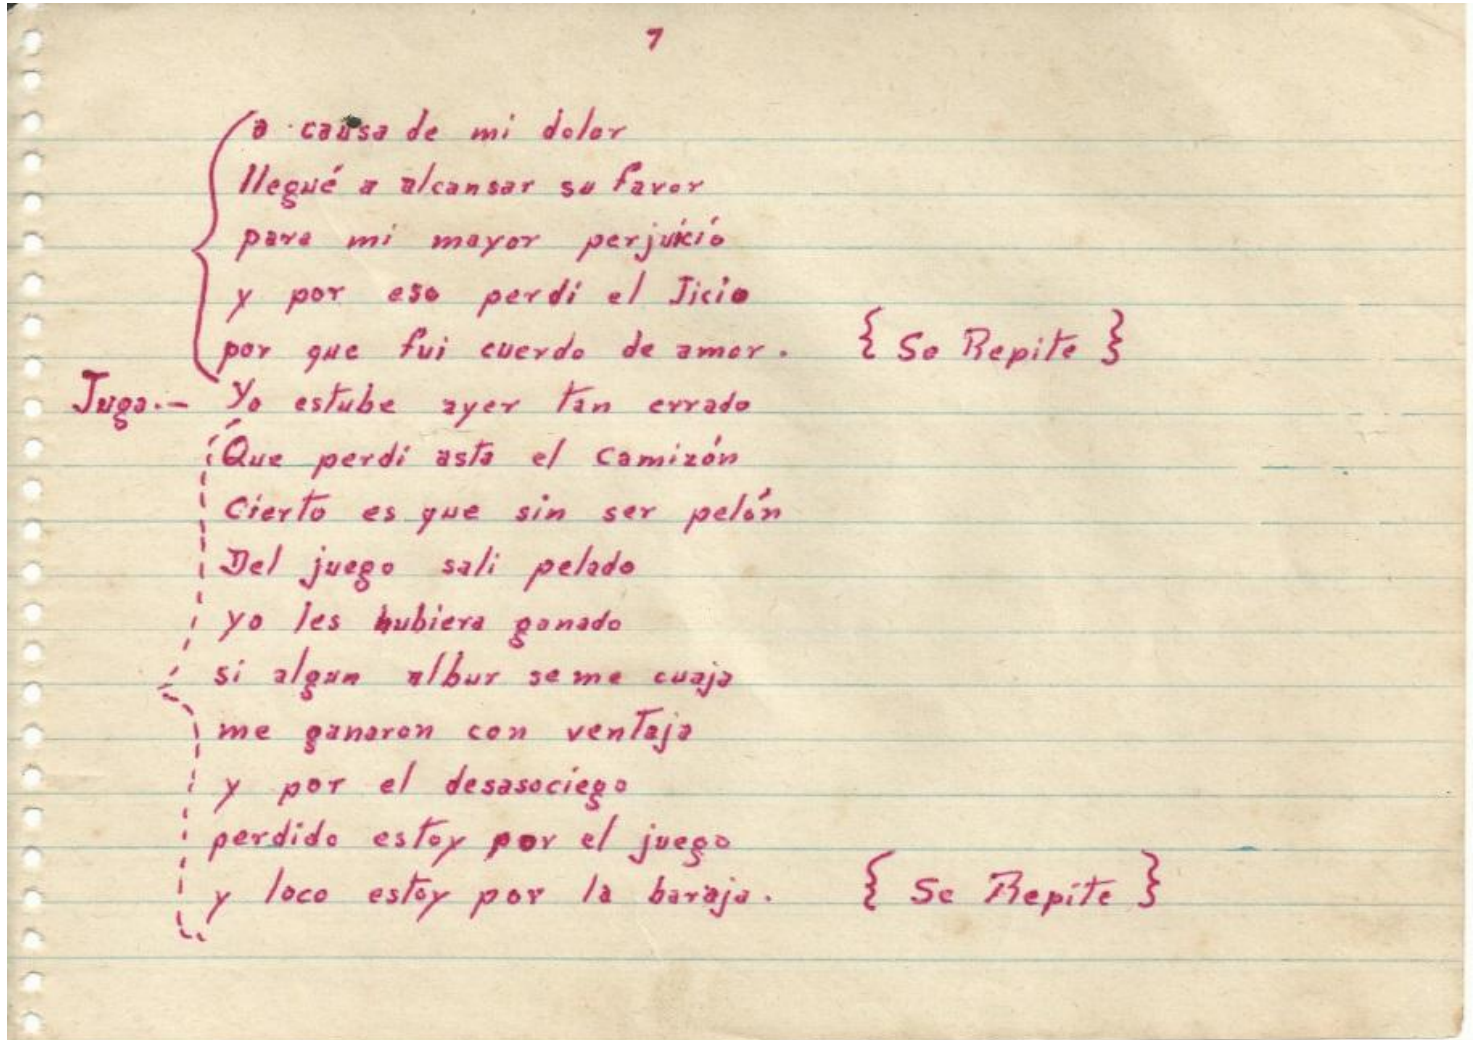 7
a causa de mi dolor
llegué a alcansar su favor
para mi mayor perjuició
y por eso perdi el Jicio
por que fui cuerdo de amor. { Se Repite }
Juga.- Yo estube ayer tan errado
Que perdi asta el camizón
Cierto es que sin ser pelón
Del juego sali pelado
yo les hubiera ganado
si algun albur se me cuaja
me ganaron con ventaja
y por el desasociego
perdido estoy por el juego
y loco estoy por la baraja. { Se Repite }